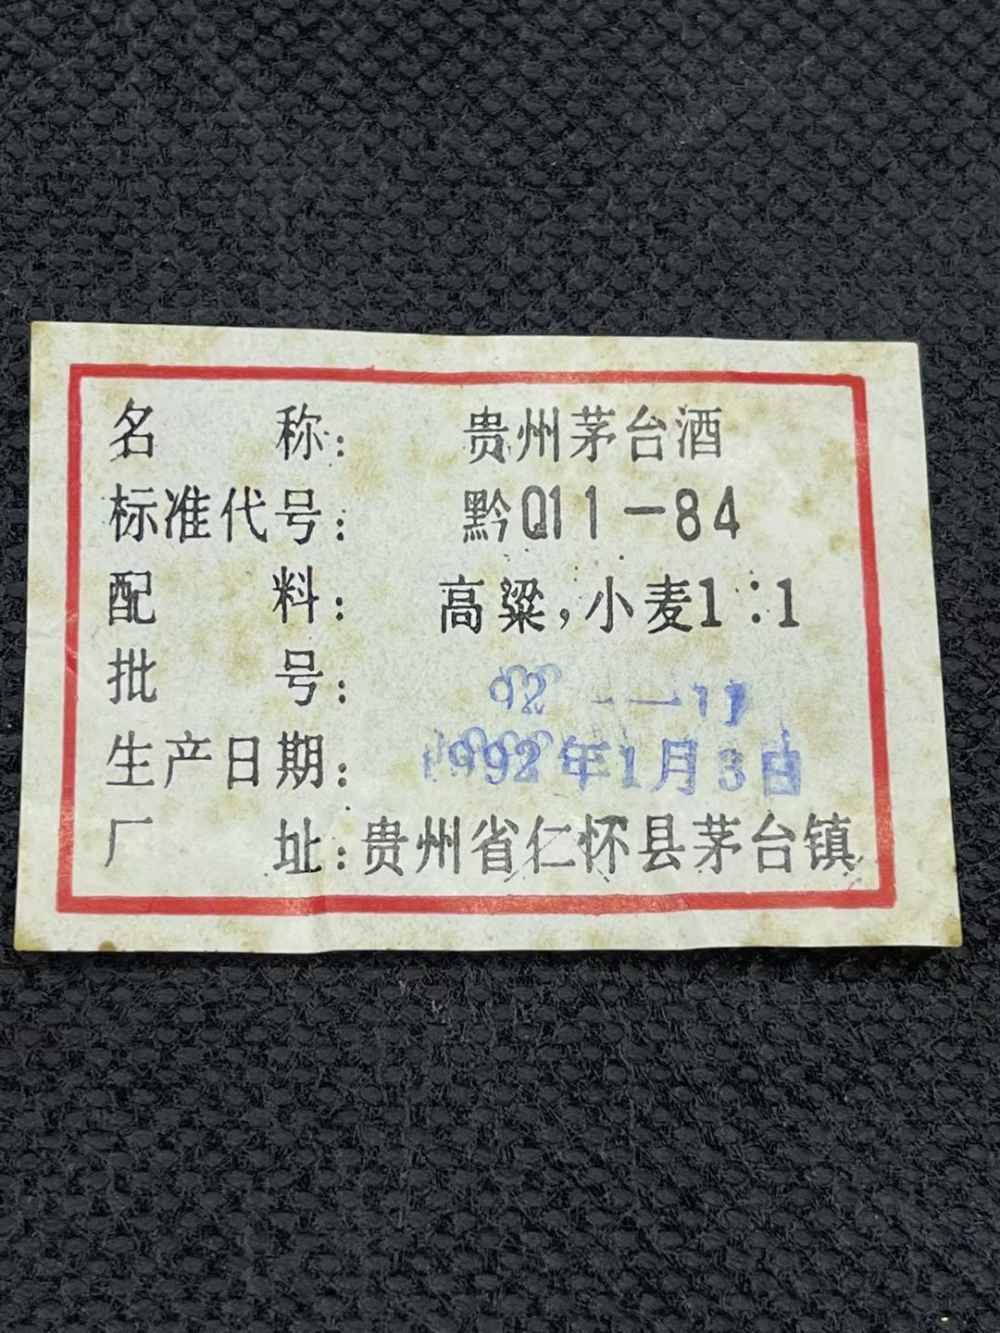 名 称: 贵州茅台酒
标准代号: 黔Q11-84
配 料: 高粱,小麦1:1
批 号: 92 -一11
生产日期: 1992年1月3日
厂 址:贵州省仁怀县茅台镇